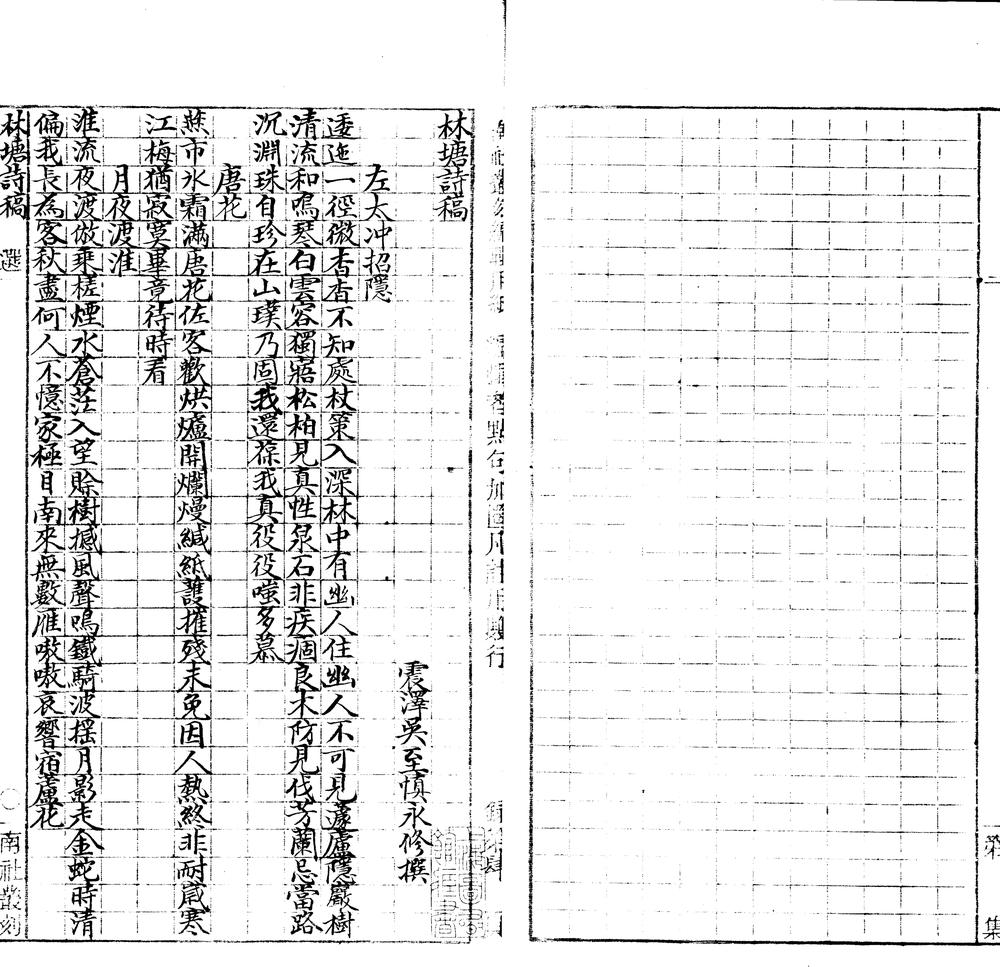 集
林塘詩稿
震澤吳至慎永修撰
左太冲招隱
逶迤一徑微杳杳不知處杖策入深林中有幽人住幽人不可見蘧廬隱巖樹
清流和鳴琴白雲容獨寤松柏見真性泉石非疾痼良木防見伐芳蘭忌當路
沉淵珠自珍在山璞乃固我還葆我真役役嗤多慕
唐花
燕市氷霜滿唐花佐客歡烘爐開爛熳緘紙護摧殘未免因人熱終非耐歲寒
江梅猶寂寞畢竟待時看
月夜渡淮
淮流夜渡倣乘槎煙水蒼茫入望賒樹撼風聲鳴鐵騎波揺月影走金蛇時清
偏我長為客秋盡何人不憶家極目南來無數雁嗷嗷哀響宿蘆花
林塘詩稿 選
南社叢刻